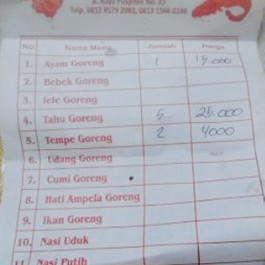 Jl. Raya Puspitek No. 83
Telp. 0812 9579 2983, 0813 1566 0346
No. Nama Menu Jumlah Harga
1. Ayam Goreng 1 19.000
2. Bebek Goreng
3. lele Goreng
4. Tahu Goreng 5 25.000
5. Tempe Goreng 2 4000
6. Udang Goreng
7. Cumi Goreng
8. Hati Ampela Goreng
9. Ikan Goreng
10. Nasi Uduk
11. Nasi Putih